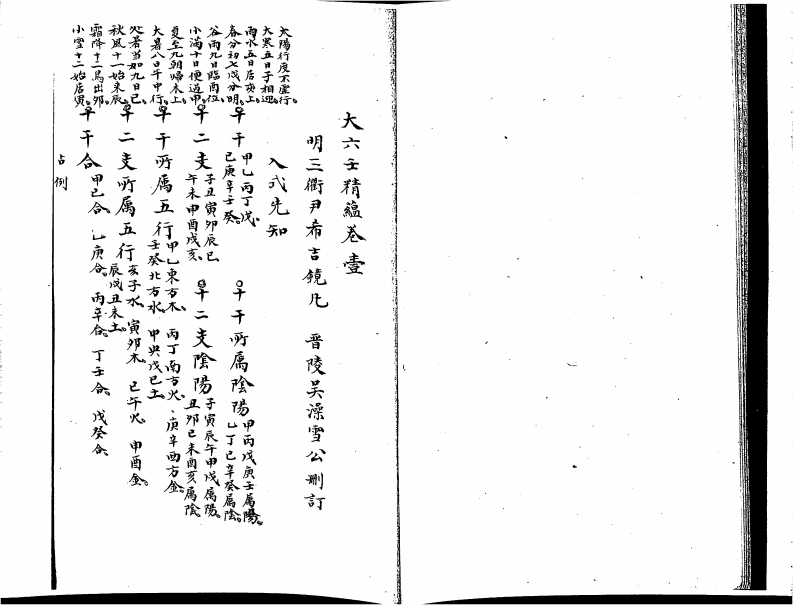 大六壬精蘊卷壹
明三衢尹希吉鏡凡　晉陵吳澡雪公刪訂
入式先知
十干　甲乙丙丁戊己庚辛壬癸。　十干所属陰陽　甲丙戊庚壬属陽。乙丁己辛癸属陰。
十二支　子丑寅卯辰巳午未申酉戌亥。　十二支陰陽　子寅辰午申戌属陽。丑卯巳未酉亥属陰。
十干所属五行　甲乙東方木。丙丁南方火、庚辛西方金。壬癸北方水。中央戊己土。
十二支所属五行　亥子水。寅卯木。巳午火。申酉金。辰戌丑未土。
十干合　甲己合。乙庚合。丙辛合。丁壬合。戊癸合。
占例
太陽行度不虛行。
大寒五日子相迎。
雨水五日居亥上。
春分初七戌分明。
谷雨九日臨酉位。
小滿十日便道申。
夏至九朝歸未上。
大暑八日午中行。
处暑當如九日巳。
秋風十一始来辰。
霜降十二馬出卯。
小雪十二始居寅。